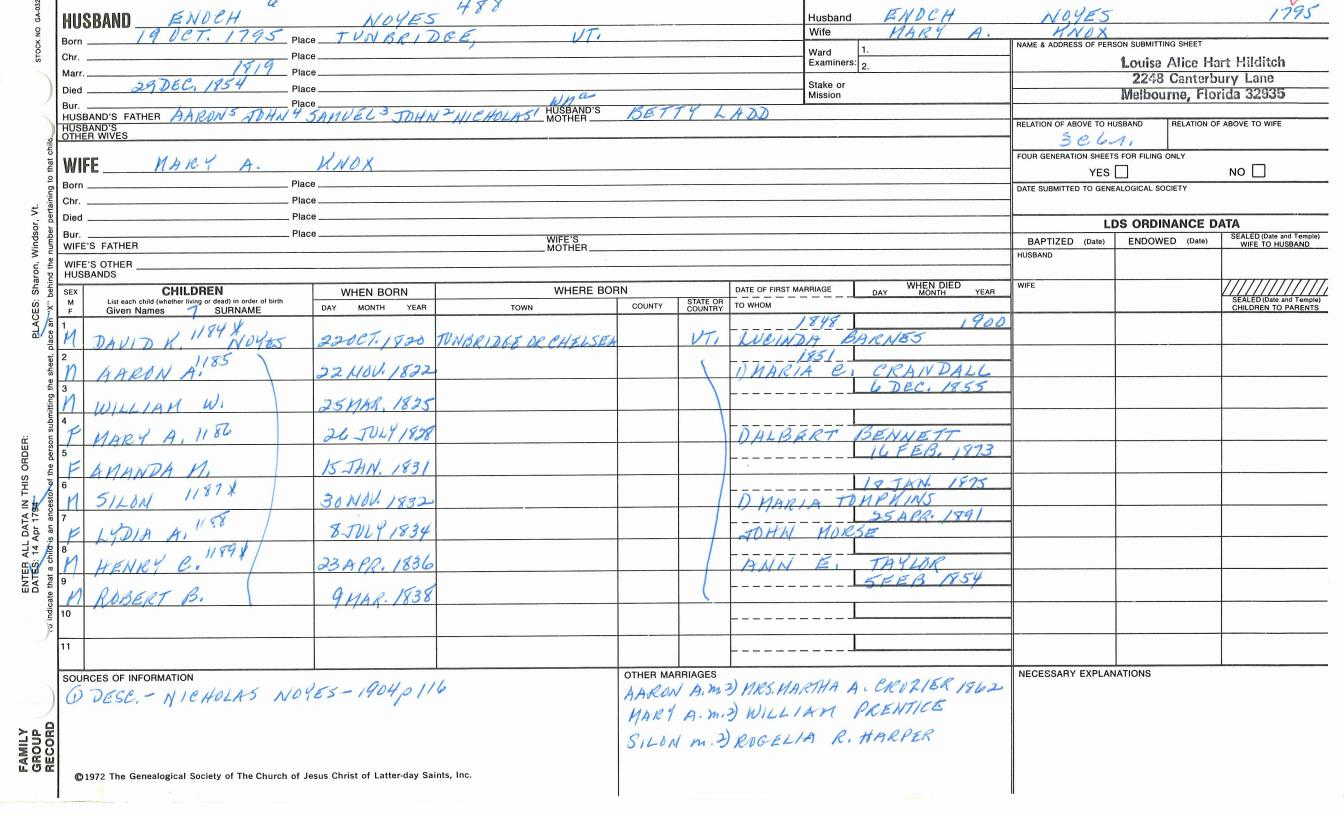 STOCK NO GA-032
HUSBAND ENOCH NOYES 488
Born 19 OCT. 1795 Place TUNBRIDGE, VT.
Chr. Place
Marr. 1819 Place
Died 29 DEC. 1854 Place
Bur. Place
HUSBAND'S FATHER AARON5 JOHN4 SAMUEL3 JOHN2 NICHOLAS1 HUSBAND'S MOTHER BETTY LADD
HUSBAND'S OTHER WIVES
WIFE MARY A. KNOX
Born Place
Chr. Place
Died Place
Bur. Place
WIFE'S FATHER WIFE'S MOTHER
WIFE'S OTHER HUSBANDS
Husband ENOCH NOYES 1795
Wife MARY A. KNOX
Ward Examiners: 1. 2.
Stake or Mission
NAME & ADDRESS OF PERSON SUBMITTING SHEET
Louise Alice Hart Hilditch
2248 Canterbury Lane
Melbourne, Florida 32935
RELATION OF ABOVE TO HUSBAND RELATION OF ABOVE TO WIFE
FOUR GENERATION SHEETS FOR FILING ONLY
YES NO
DATE SUBMITTED TO GENEALOGICAL SOCIETY
LDS ORDINANCE DATA
BAPTIZED (Date) ENDOWED (Date) SEALED (Date and Temple) WIFE TO HUSBAND
HUSBAND
WIFE
SEALED (Date and Temple) CHILDREN TO PARENTS
SEX M F
CHILDREN
List each child (whether living or dead) in order of birth
Given Names 7 SURNAME
WHEN BORN DAY MONTH YEAR
WHERE BORN TOWN COUNTY STATE OR COUNTRY
DATE OF FIRST MARRIAGE TO WHOM
WHEN DIED DAY MONTH YEAR
1 M DAVID K. 1184 X NOYES 22 OCT. 1820 TUNBRIDGE OR CHELSEA VT. 1848 LUCINDA BARNES 1900
2 M AARON A. 1185 22 NOV. 1822 1851 1) MARIA C. CRANDALL
3 M WILLIAM W. 25 MAR. 1825 6 DEC. 1855
4 F MARY A. 1186 26 JULY 1828 1) ALBERT BENNETT
5 F AMANDA M. 15 JAN. 1831 16 FEB. 1873
6 M SILON 1187 X 30 NOV. 1832 1) MARIA TOMPKINS 18 JAN. 1875
7 F LYDIA A. 1188 8 JULY 1834 JOHN MORSE 25 APR. 1891
8 M HENRY C. 1189 X 23 APR. 1836 ANN E. TAYLOR
9 M ROBERT B. 9 MAR. 1838 5 FEB 1854
10
11
SOURCES OF INFORMATION
① DESC. - NICHOLAS NOYES - 1904 p 116
OTHER MARRIAGES
AARON A. m 2) MRS. MARTHA A. CROZIER 1862
MARY A. m. 2) WILLIAM PRENTICE
SILON m. 2) ROGELIA R. HARPER
NECESSARY EXPLANATIONS
©1972 The Genealogical Society of The Church of Jesus Christ of Latter-day Saints, Inc.
FAMILY GROUP RECORD
ENTER ALL DATA IN THIS ORDER:
DATES: 14 Apr 1794
PLACES: Sharon, Windsor, Vt.
To indicate that a child is an ancestor of the person submitting the sheet, place an "X" behind the number pertaining to that child.